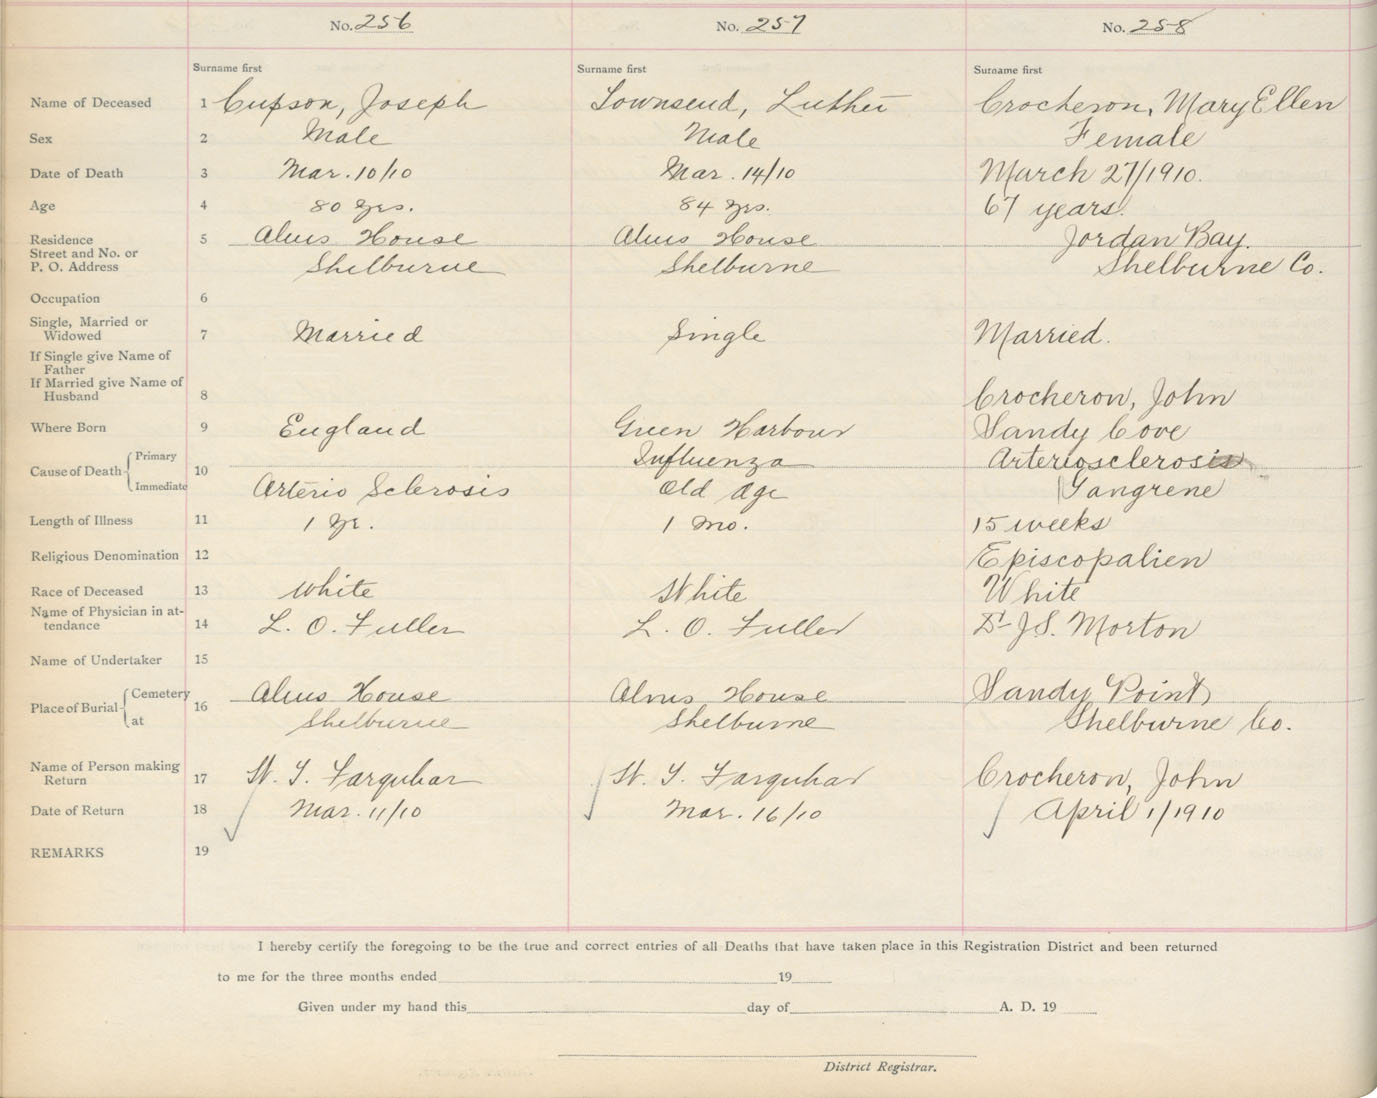 No. 256 No. 257 No. 258
Surname first Surname first Surname first
Name of Deceased 1 Cupson, Joseph Townsend, Luther Crocheron, Mary Ellen
Sex 2 Male Male Female
Date of Death 3 Mar. 10/10 Mar. 14/10 March 27/1910.
Age 4 80 yrs. 84 yrs. 67 years.
Residence 5 Alms House Alms House Jordan Bay.
Street and No. or
P. O. Address Shelburne Shelburne Shelburne Co.
Occupation 6
Single, Married or
Widowed 7 Married Single Married.
If Single give Name of
Father
If Married give Name of
Husband 8 Crocheron, John
Where Born 9 England Green Harbour Sandy Cove
Cause of Death Primary Influenza Arteriosclerosis
10
Immediate Arterio Sclerosis Old Age Gangrene
Length of Illness 11 1 Yr. 1 mo. 15 weeks
Religious Denomination 12 Episcopalien
Race of Deceased 13 White White White
Name of Physician in at-
tendance 14 L. O. Fuller L. O. Fuller Dr J.S. Morton
Name of Undertaker 15
Place of Burial Cemetery 16 Alms House Alms House Sandy Point,
at Shelburne Shelburne Shelburne Co.
Name of Person making
Return 17 W. T. Farquhar W. T. Farquhar Crocheron, John
Date of Return 18 Mar. 11/10 Mar. 16/10 April 1/1910
REMARKS 19
I hereby certify the foregoing to be the true and correct entries of all Deaths that have taken place in this Registration District and been returned
to me for the three months ended 19
Given under my hand this day of A. D. 19
District Registrar.